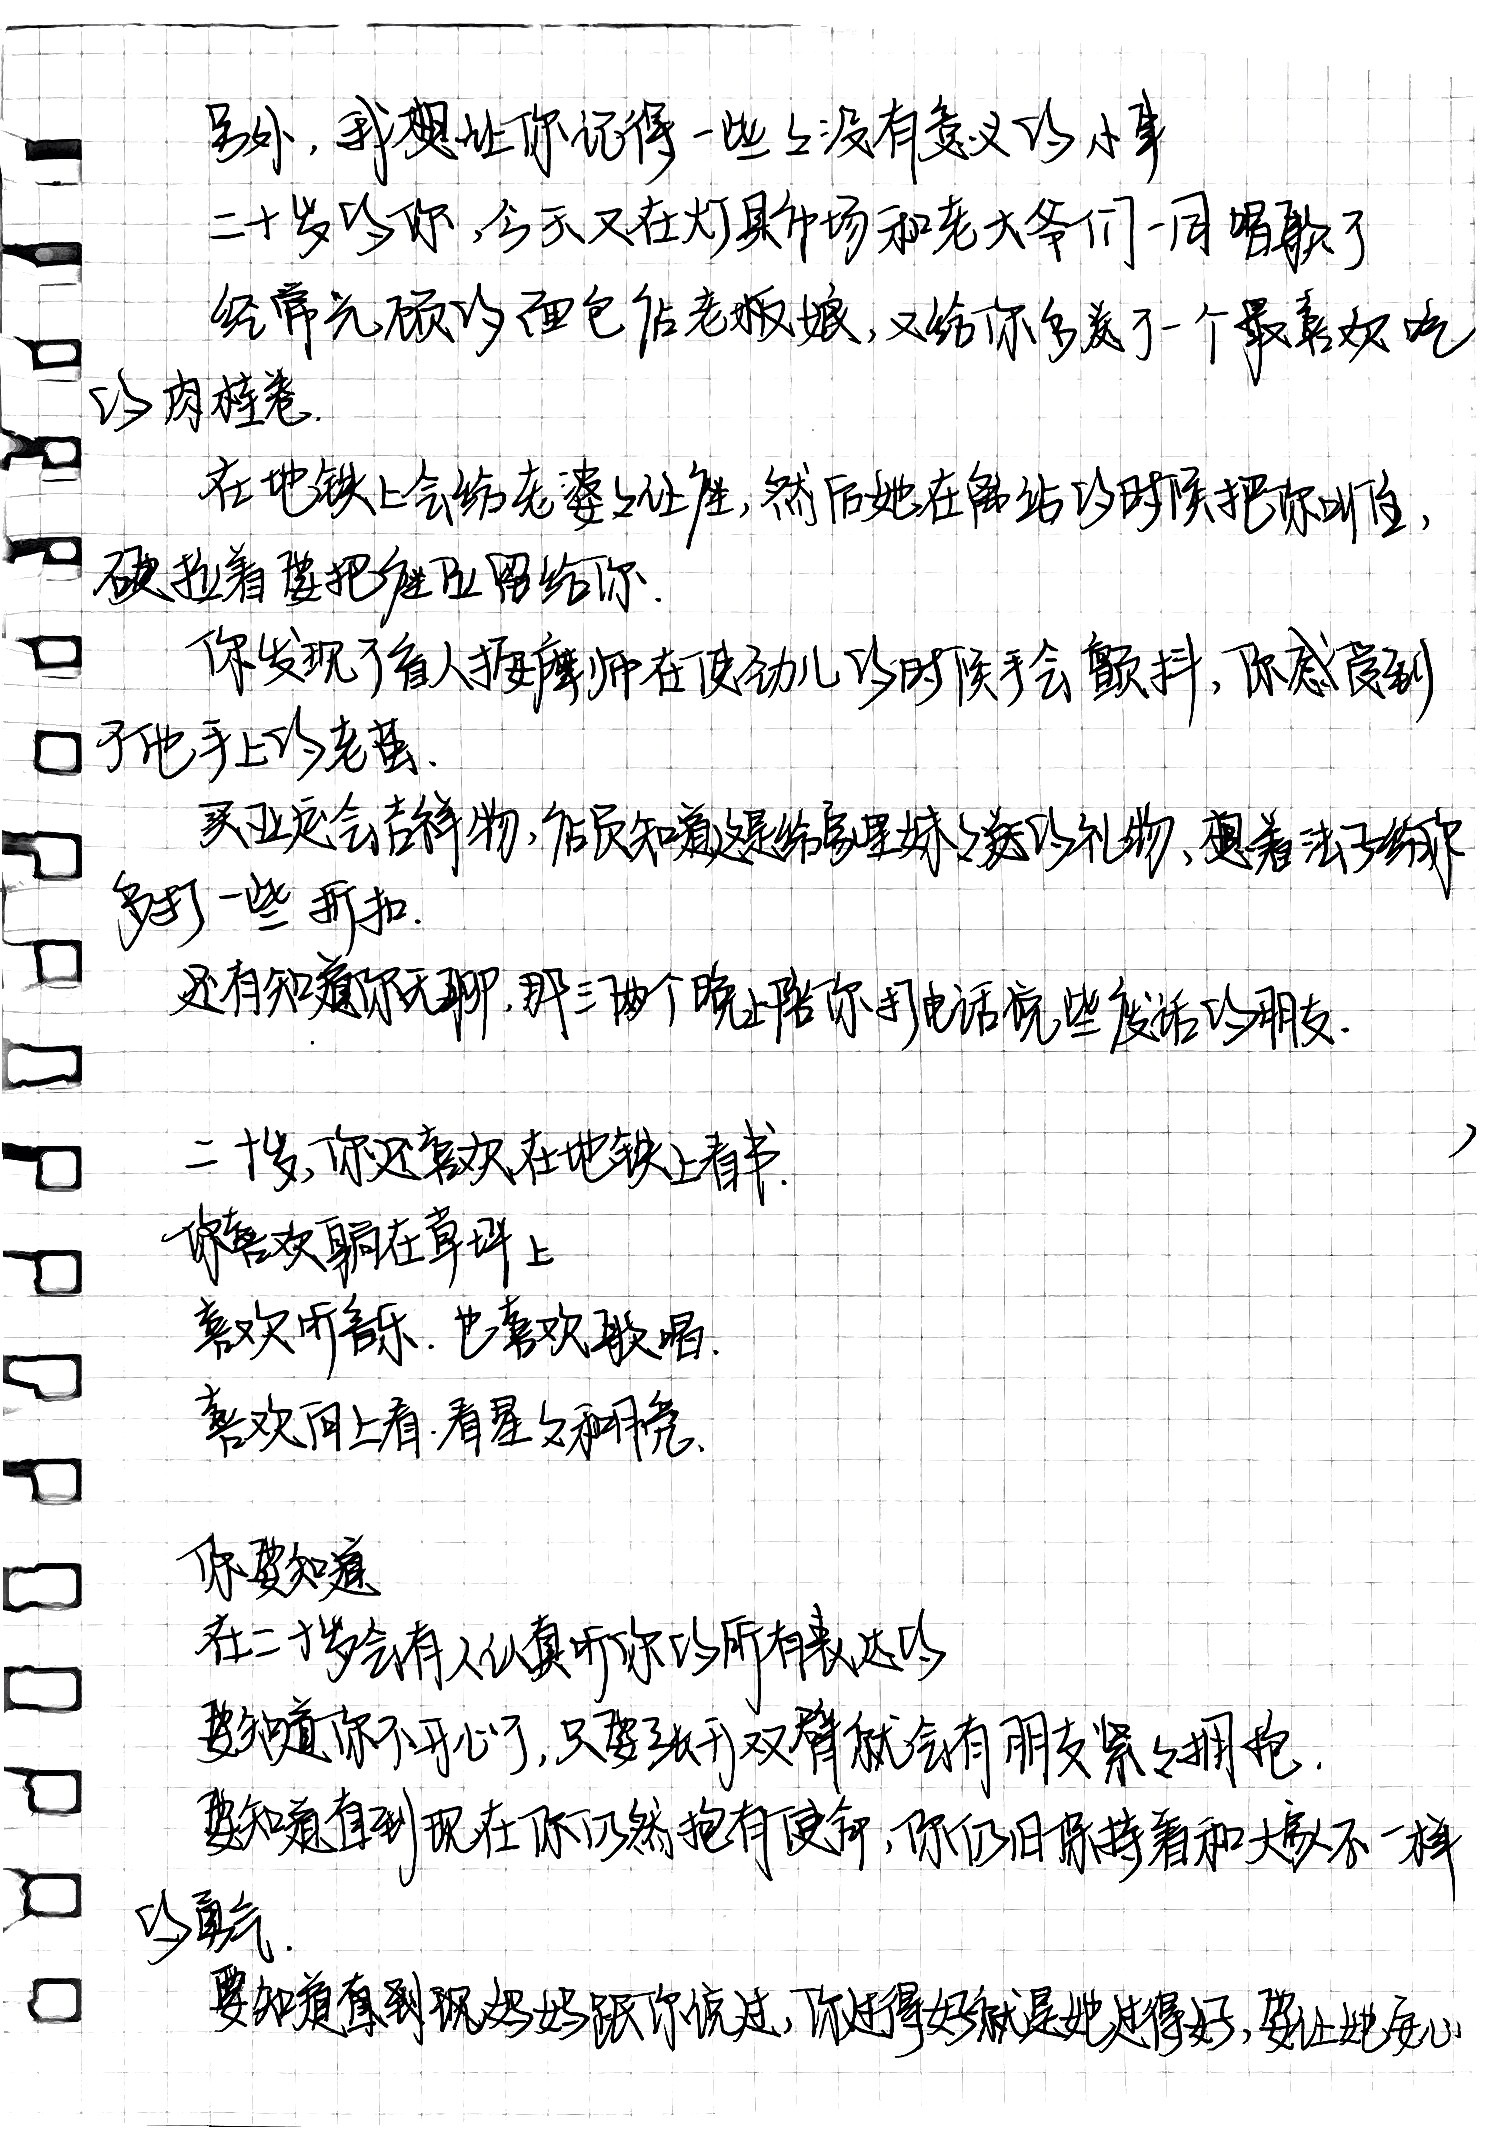 另外，我想让你记得一些々没有意义的小事
二十岁的你，今天又在灯具市场和老大爷们一同唱歌了
经常光顾的面包店老板娘，又给你多送了一个最喜欢吃
的肉桂卷.
在地铁上会给老婆々让座，然后她在到站的时候把你叫住，
硬拉着要把座位留给你.
你发现了盲人按摩师在使劲儿的时候手会颤抖，你感受到
了他手上的老茧.
买亚运会吉祥物，店员知道这是给家里妹々送的礼物、想着法子给你
多打一些折扣.
还有知道你无聊.那三两个晚上陪你打电话说些废话的朋友.
二十岁，你还喜欢在地铁上看书.
你喜欢躺在草坪上
喜欢听音乐.也喜欢歌唱.
喜欢向上看.看星々和月亮、
你要知道
在二十岁会有人认真听你的所有表达的
要知道你不开心了，只要张开双臂就会有朋友紧々拥抱.
要知道直到现在你仍然抱有使命，你仍旧保持着和大家不一样
的勇气.
要知道直到现妈妈跟你说过，你过得好就是她过得好，要让她安心